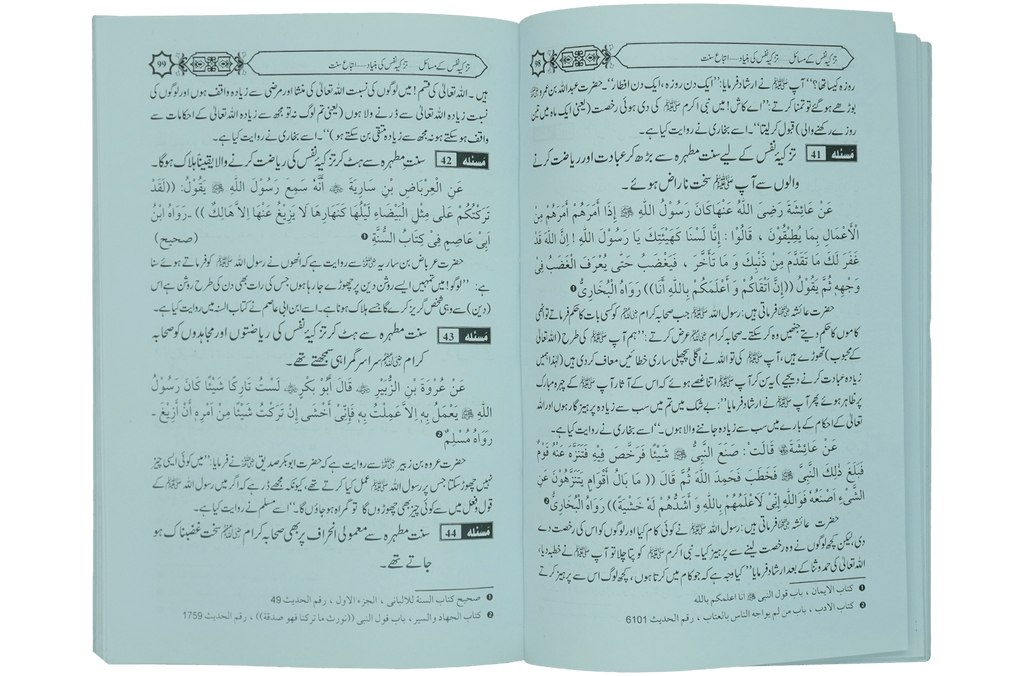 98
تزکیۂ نفس کے مسائل .... تزکیۂ نفس کی بنیاد .... اتباع سنت
روزہ کیسا تھا؟‘‘ آپ ﷺ نے ارشاد فرمایا: ’’ایک دن روزہ، ایک دن افطار‘‘ حضرت عبداللہ بن عمرو
بوڑھے ہو گئے تو تمنا کرتے: ’’اے کاش! میں نبی اکرم ﷺ کی دی ہوئی رخصت (یعنی ایک ماہ میں تین
روزے رکھنے والی) قبول کر لیتا‘‘۔ اسے بخاری نے روایت کیا ہے۔
مسئلہ 41 تزکیۂ نفس کے لیے سنت مطہرہ سے بڑھ کر عبادت اور ریاضت کرنے
والوں سے آپ ﷺ سخت ناراض ہوئے۔
عَنْ عَائِشَةَ رَضِيَ اللَّهُ عَنْهَا كَانَ رَسُولُ اللَّهِ ﷺ إِذَا أَمَرَهُمْ أَمَرَهُمْ مِنْ
الْأَعْمَالِ بِمَا يُطِيقُونَ ، قَالُوا : إِنَّا لَسْنَا كَهَيْئَتِكَ يَا رَسُولَ اللَّهِ ! إِنَّ اللَّهَ قَدْ
غَفَرَ لَكَ مَا تَقَدَّمَ مِنْ ذَنْبِكَ وَ مَا تَأَخَّرَ ، فَيَغْضَبُ حَتَّى يُعْرَفَ الْغَضَبُ فِيْ
وَجْهِهِ ثُمَّ يَقُولُ ((إِنَّ أَتْقَاكُمْ وَ أَعْلَمَكُمْ بِاللَّهِ أَنَا)) رَوَاهُ الْبُخَارِيُّ ❶
حضرت عائشہ فرماتی ہیں: رسول اللہ ﷺ جب صحابہ کرام کو کسی بات کا حکم فرماتے تو انہی
کاموں کا حکم دیتے جنھیں وہ کر سکتے۔ صحابہ کرام عرض کرتے: ’’ہم آپ ﷺ کی طرح (اللہ تعالیٰ
کے محبوب) تھوڑے ہیں، آپ ﷺ کی تو اللہ نے اگلی پچھلی ساری خطائیں معاف کر دی ہیں (لہٰذا ہمیں
زیادہ عبادت کرنے دیجیے) یہ سن کر آپ ﷺ اتنا غصے ہوئے کہ اس کے آثار آپ ﷺ کے چہرہ مبارک
پر ظاہر ہوئے پھر آپ ﷺ نے ارشاد فرمایا: ’’بے شک میں تم میں سب سے زیادہ پرہیز گار ہوں اور اللہ
تعالیٰ کے احکام کے بارے میں سب سے زیادہ جاننے والا ہوں۔‘‘ اسے بخاری نے روایت کیا ہے۔
عَنْ عَائِشَةَ قَالَتْ : صَنَعَ النَّبِيُّ ﷺ شَيْئًا فَرَخَّصَ فِيهِ فَتَنَزَّهَ عَنْهُ قَوْمٌ
فَبَلَغَ ذَلِكَ النَّبِيَّ ﷺ فَخَطَبَ فَحَمِدَ اللَّهَ ثُمَّ قَالَ (( مَا بَالُ أَقْوَامٍ يَتَنَزَّهُونَ عَنِ
الشَّيْءِ أَصْنَعُهُ فَوَاللَّهِ إِنِّي لَأَعْلَمُهُمْ بِاللَّهِ وَ أَشَدُّهُمْ لَهُ خَشْيَةً)) رَوَاهُ الْبُخَارِيُّ ❷
حضرت عائشہ فرماتی ہیں: رسول اللہ ﷺ نے کوئی کام کیا اور لوگوں کو اس کی رخصت دے
دی، لیکن کچھ لوگوں نے وہ رخصت لینے سے پرہیز کیا۔ نبی اکرم ﷺ کو پتا چلا تو آپ ﷺ نے خطبہ دیا،
اللہ تعالیٰ کی حمد و ثنا کے بعد ارشاد فرمایا ’’کیا وجہ ہے کہ جو کام میں کرتا ہوں، کچھ لوگ اس سے پرہیز کرتے
❶ کتاب الایمان ، باب قول النبی ﷺ انا اعلمکم باللہ
❷ کتاب الادب ، باب من لم یواجہ الناس بالعتاب ، رقم الحدیث 6101
99
تزکیۂ نفس کے مسائل .... تزکیۂ نفس کی بنیاد .... اتباع سنت
ہیں۔ اللہ تعالیٰ کی قسم! میں لوگوں کی نسبت اللہ تعالیٰ کی منشا اور مرضی سے زیادہ واقف ہوں اور لوگوں کی
نسبت زیادہ اللہ تعالیٰ سے ڈرنے والا ہوں (یعنی تم لوگ نہ تو مجھ سے زیادہ اللہ تعالیٰ کے احکامات سے
واقف ہو سکتے ہو نہ مجھ سے زیادہ متقی بن سکتے ہو)‘‘۔ اسے بخاری نے روایت کیا ہے۔
مسئلہ 42 سنت مطہرہ سے ہٹ کر تزکیۂ نفس کی ریاضت کرنے والا یقیناً ہلاک ہوگا۔
عَنِ الْعِرْبَاضِ بْنِ سَارِيَةَ أَنَّهُ سَمِعَ رَسُولَ اللَّهِ ﷺ يَقُولُ: ((لَقَدْ
تَرَكْتُكُمْ عَلَى مِثْلِ الْبَيْضَاءِ لَيْلُهَا كَنَهَارِهَا لَا يَزِيغُ عَنْهَا إِلَّا هَالِكٌ )) ۔ رَوَاهُ ابْنُ
أَبِي عَاصِمٍ فِيْ كِتَابِ السُّنَّةِ ❶ (صحيح)
حضرت عرباض بن ساریہ سے روایت ہے کہ انھوں نے رسول اللہ ﷺ کو فرماتے ہوئے سنا
ہے: ’’لوگو! میں تمہیں ایسے روشن دین پر چھوڑے جا رہا ہوں جس کی رات بھی دن کی طرح روشن ہے اس
(دین) سے وہی شخص گریز کرے گا جسے ہلاک ہونا ہے۔ اسے ابن ابی عاصم نے کتاب السنہ میں روایت کیا ہے۔
مسئلہ 43 سنت مطہرہ سے ہٹ کر تزکیۂ نفس کی ریاضتوں اور مجاہدوں کو صحابہ
کرام سراسر گمراہی سمجھتے تھے۔
عَنْ عُرْوَةَ بْنِ الزُّبَيْرِ قَالَ أَبُو بَكْرٍ لَسْتُ تَارِكًا شَيْئًا كَانَ رَسُولُ
اللَّهِ ﷺ يَعْمَلُ بِهِ إِلَّا عَمِلْتُ بِهِ فَإِنِّي أَخْشَى إِنْ تَرَكْتُ شَيْئًا مِنْ أَمْرِهِ أَنْ أَزِيغَ ۔
رَوَاهُ مُسْلِمٌ ❷
حضرت عروہ بن زبیر سے روایت ہے کہ حضرت ابوبکر صدیق نے فرمایا: ’’میں کوئی ایسی چیز
نہیں چھوڑ سکتا جس پر رسول اللہ ﷺ عمل کیا کرتے تھے، کیونکہ مجھے ڈر ہے کہ اگر میں رسول اللہ ﷺ کے
قول و فعل میں سے کوئی چیز بھی چھوڑوں گا تو گمراہ ہو جاؤں گا۔‘‘ اسے مسلم نے روایت کیا ہے۔
مسئلہ 44 سنت مطہرہ سے معمولی انحراف پر بھی صحابہ کرام سخت غضبناک ہو
جاتے تھے۔
❶ صحیح کتاب السنة للالبانی ، الجزء الاول ، رقم الحدیث 49
❷ کتاب الجهاد والسیر ، باب قول النبی ((نورث ما ترکنا فهو صدقة)) ، رقم الحدیث 1759